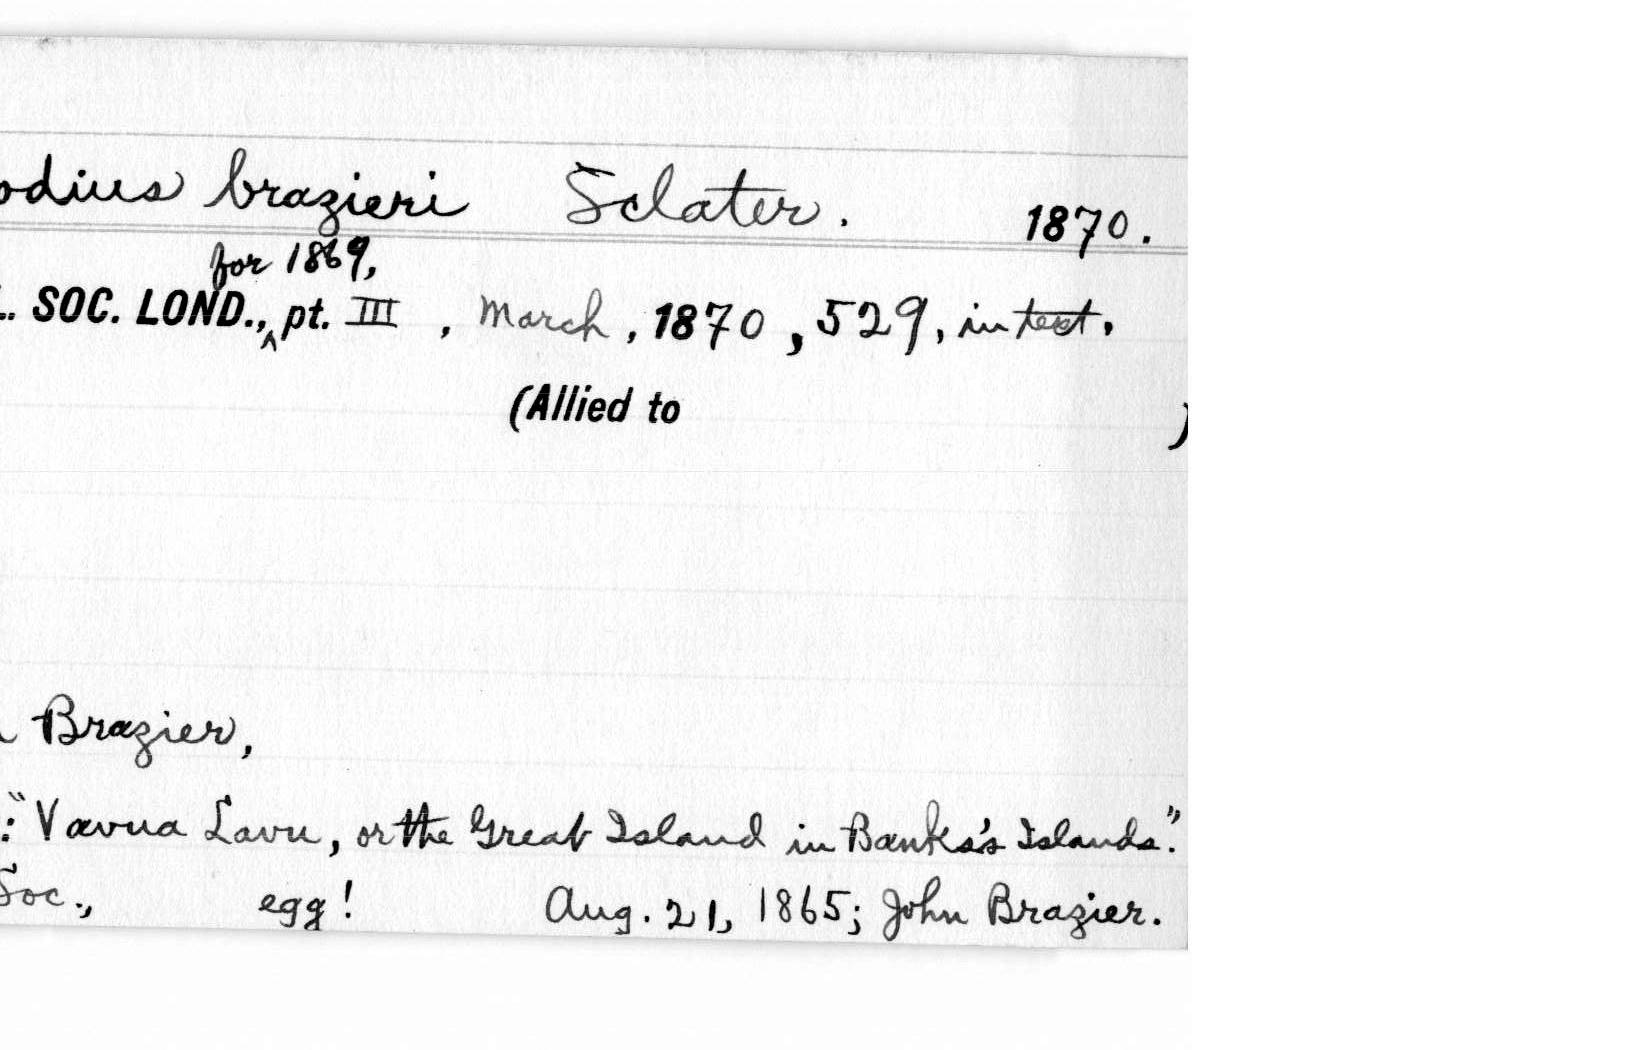 odius brazieri Sclater. 1870.
for 1869,
. SOC. LOND.,^ pt. III, March, 1870, 529, in text.
(Allied to )
Brazier,
: "Vavua Lavu, or the Great Island in Banks's Islands."
Soc., egg! Aug. 21, 1865; John Brazier.